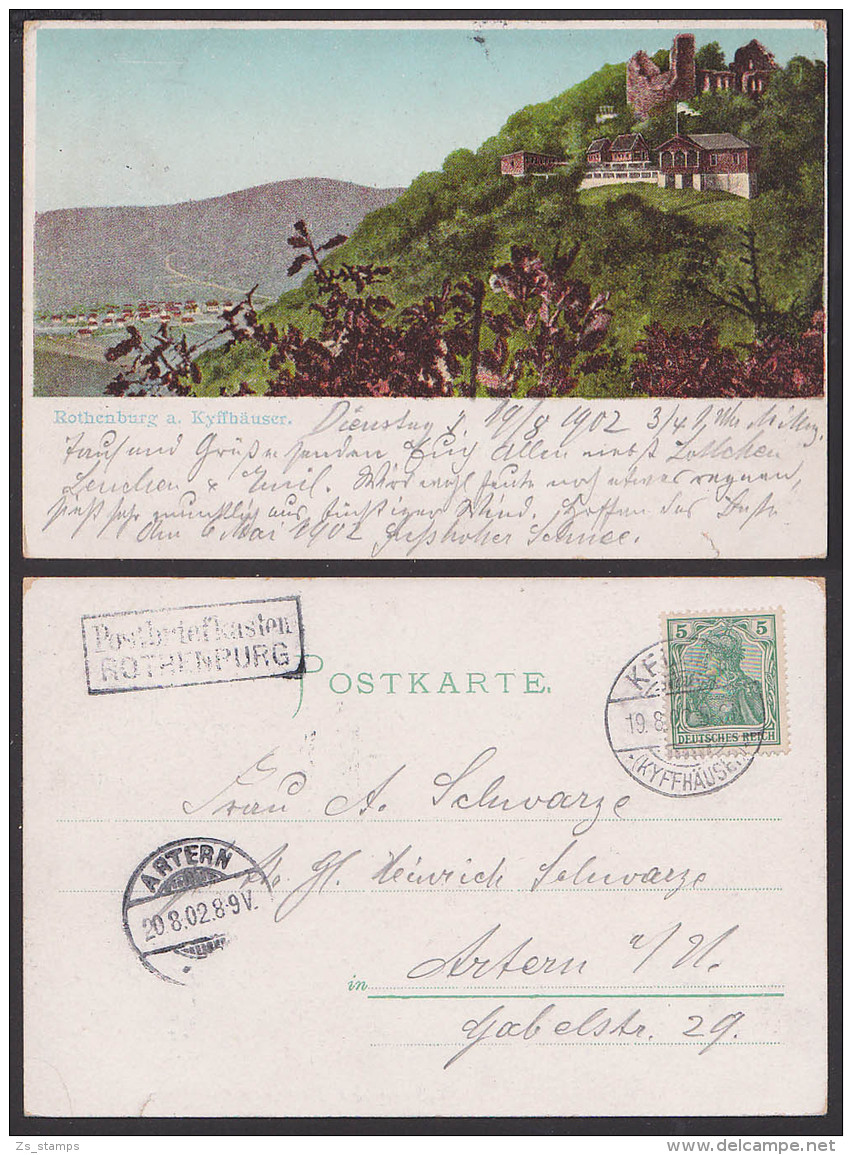 Rothenburg a. Kyffhäuser.
Dienstag d. 19/8 1902 3/4 1 Uhr Mittag.
Tausend Grüße senden Euch Allen nebst Lottchen
Lenchen & Emil. Wird wohl heute noch etwas regnen,
sieht sehr aus, Wind. Hoffen das Beste
Am 6 Mai 1902 fusshoher Schnee.
Postbriefkasten
ROTHENBURG
POSTKARTE.
5 5
DEUTSCHES REICH
19.8
(KYFFHÄUSER)
Frau A. Schwarze
Heinrich Schwarze
ARTERN
20.8.02.8-9V.
in Artern a/U.
Gabelstr. 29.
Zs_stamps
www.delcampe.net